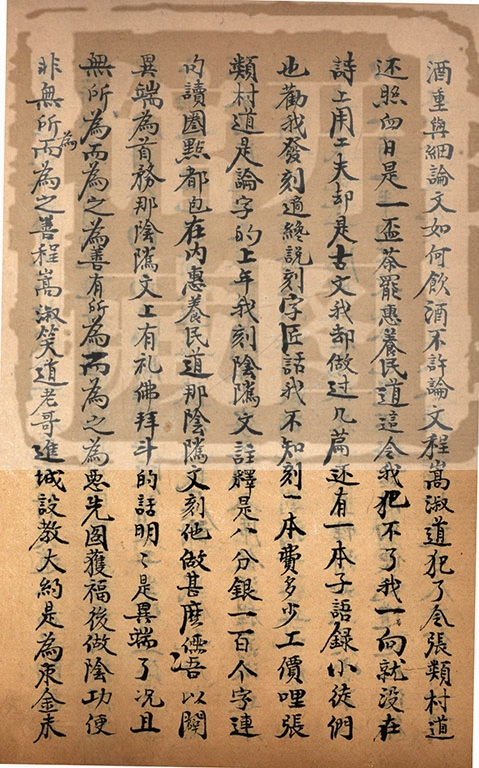 酒重與細論文如何飲酒不許論文程嵩淑道犯了令張類村道
还照向日是一盃茶罷惠養民道這令我犯不了我一向就没在
詩上用工夫却是古文我却做过几篇还有一本子語錄小徒們
也勸我發刻適終説刻字匠話我不知刻一本費多少工價哩張
類村道是論字的上年我刻陰隲文註釋是八分銀一百个字連
句讀圈點都包在内惠養民道那陰隲文刻他做甚麽儒吾以闢
異端為首務那陰隲文上有礼佛拜斗的話明〻是異端了况且
無所為而為之為善有所為而為之為惡先圖獲福後做陰功便
非無所為而為之善程嵩淑笑道老哥進城設教大約是為束金未